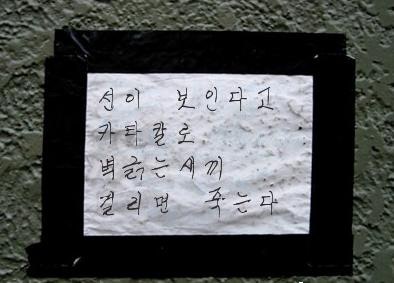 선이 보인다고
카타칼로
벽긁는새끼
걸리면 죽는다